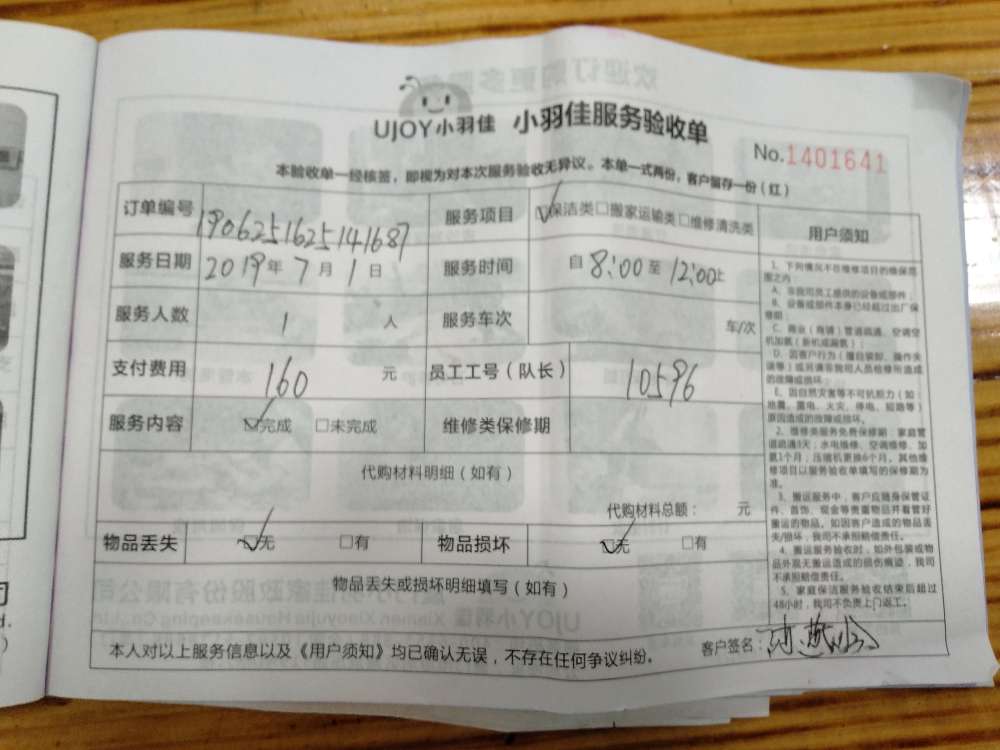 UJOY小羽佳 小羽佳服务验收单
No.1401641
本验收单一经核签，即视为对本次服务验收无异议。本单一式两份，客户留存一份（红）
订单编号 1906251625141687 服务项目 ☑保洁类☐搬家运输类☐维修清洗类
服务日期 2019年7月1日 服务时间 自8:00至12:00止
服务人数 1 人 服务车次 车/次
支付费用 160 元 员工工号（队长） 10596
服务内容 ☑完成 ☐未完成 维修类保修期
代购材料明细（如有）
代购材料总额： 元
物品丢失 ☑无 ☐有 物品损坏 ☑无 ☐有
物品丢失或损坏明细填写（如有）
用户须知
1、下列情况不在维修项目的维保范
围之内：
A、非我司员工提供的设备或部件；
B、设备或部件本身已经超过出厂保
修期；
C、商业（商铺）管道疏通、空调空
机加氨（新机或漏氨）；
D、因客户行为（擅自装卸、操作失
误等）或另请非我司人员维修所造成
的故障或损坏；
E、因自然灾害等不可抗拒力（如：
地震、雷电、火灾、停电、短路等）
原因造成的故障或损坏。
2、维修类服务免费保修期：家庭管
道疏通3天；水电维修、空调维修、加
氨1个月；压缩机更换6个月。其他维
修项目以服务验收单填写的保修期为
准。
3、搬运服务中，客户应随身保管证
件、首饰、现金等贵重物品并看管好
搬运的物品。如因客户造成的物品丢
失/损坏，我司不承担赔偿责任。
4、搬运服务验收时，如外包装或物
品外观无搬运造成的损伤痕迹，我司
不承担赔偿责任。
5、家庭保洁服务验收结束后超过
48小时，我司不负责上门返工。
本人对以上服务信息以及《用户须知》均已确认无误，不存在任何争议纠纷。 客户签名：